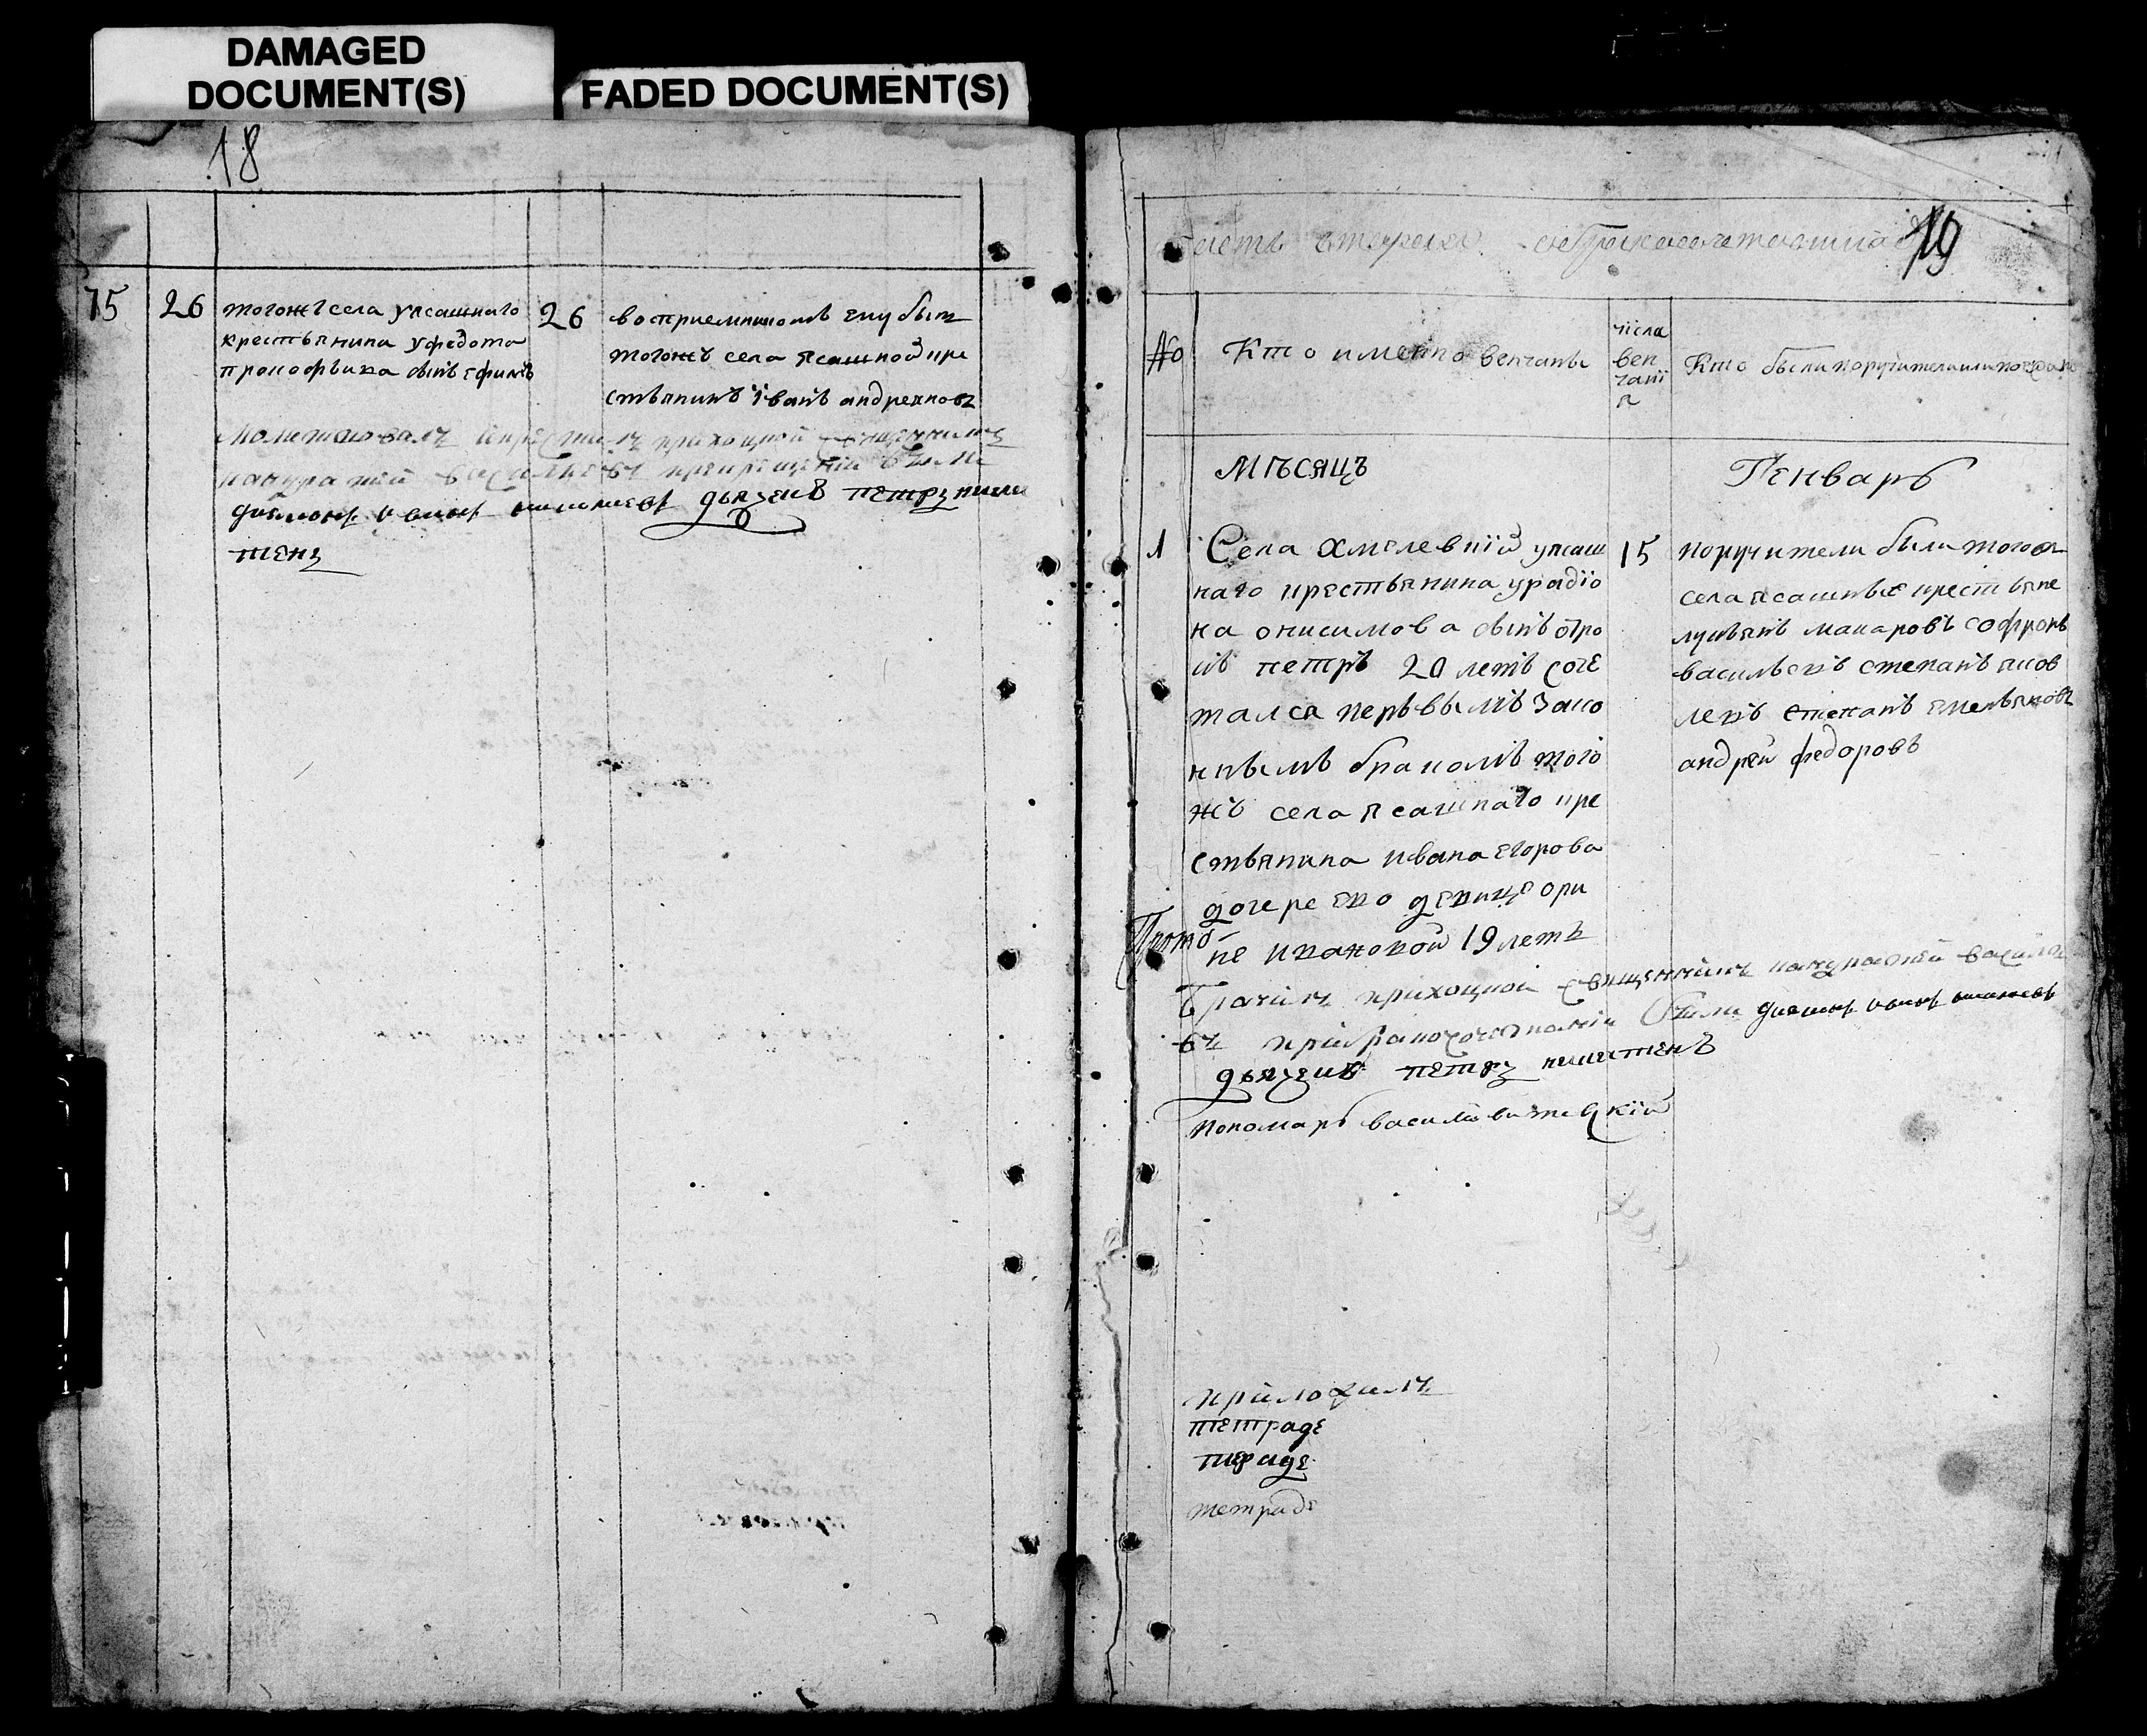 DAMAGED
DOCUMENT(S)
FADED DOCUMENT(S)
18
75
26
тогожъ села уясашнаго
крестьянина уфедота
прокофьива сынъ ефимъ
26
восприемникомъ ему былъ
тогожъ села ясашной кре
стьянинъ їванъ андреяновъ
молитвовалъ икрестилъ приходной священникъ
панкратий васильевъ прикрещении были
диаконъ иванъ дьячекъ петръ никитинъ
19
часть вторая обракосочетавшихся
№
Кто именно венчаны
числа
вен
чанї
я
Кто были поручители
мѣсяцъ
Генварь
1
Села хмелевкїй уясаш
наго крестьянина уродїо
на онисимова сынъ отро
къ петръ 20 летъ соче
тался первымъ зако
ннымъ бракомъ того
жъ села ясашнаго кре
стьянина ивана егорова
дочерею девице ори
не ивановой 19 летъ
15
поручители были тогожъ
села ясашные крестьяне
лукьянъ макаровъ софронъ
васильевъ степанъ яков
левъ степанъ емельяновъ
андрей федоровъ
Прото
Брачилъ приходной священникъ панкратий василье
въ прибракосочетании были диаконъ иванъ
дьячекъ петръ никитинъ
пономарь василей
приложилъ
тетраде
тераде
тетраде